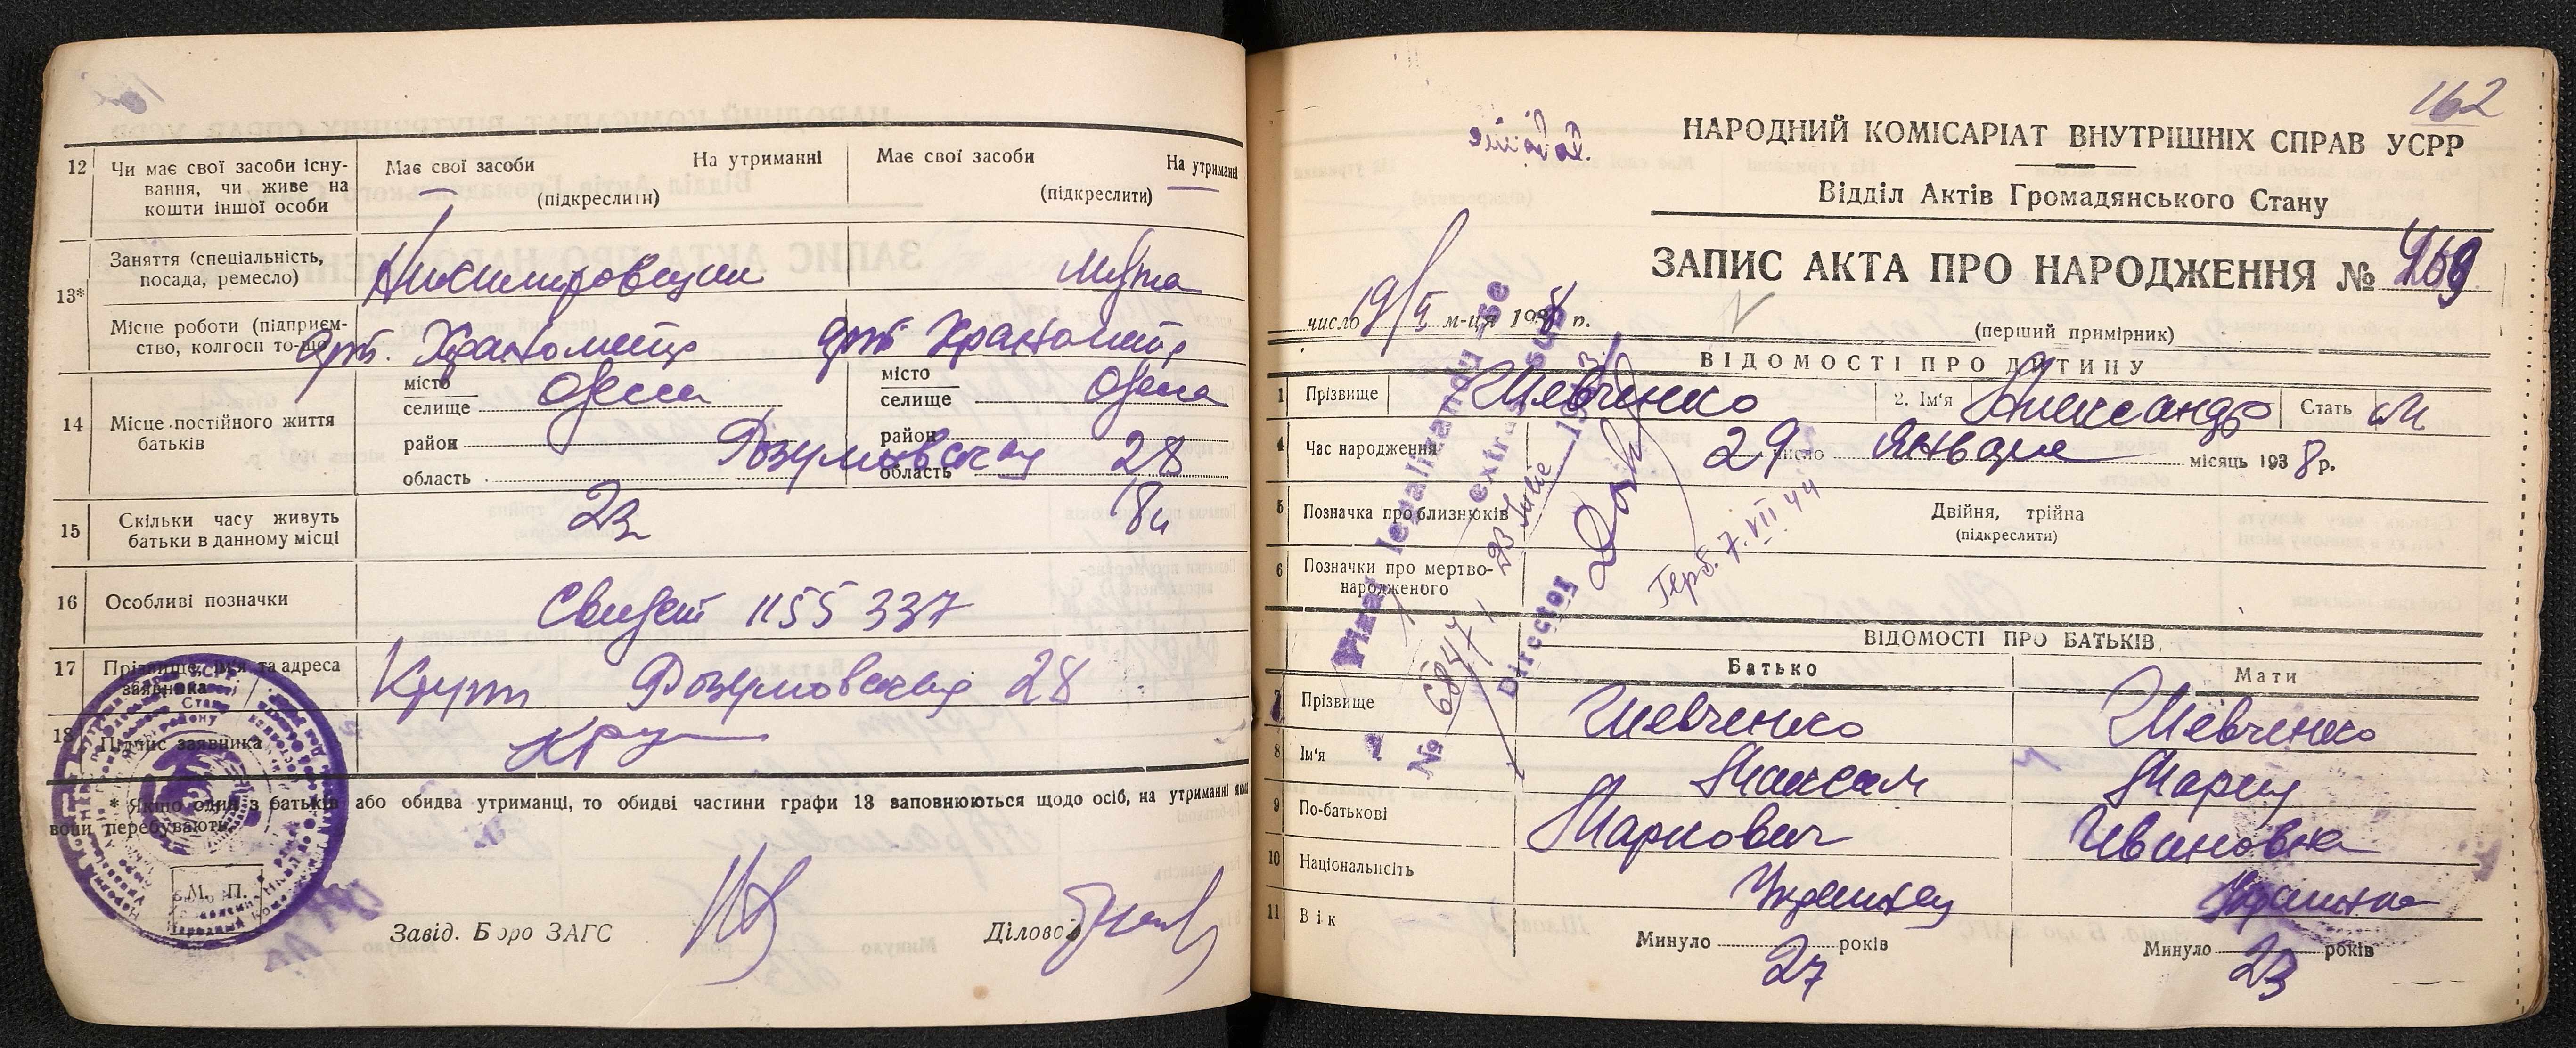 12 Чи має свої засоби існу-
вання, чи живе на
кошти іншої особи
Має свої засоби На утриманні
(підкреслити)
Має свої засоби На утриманні
(підкреслити)
13* Заняття (спеціальність,
посада, ремесло)
Місце роботи (підприєм-
ство, колгосп то-що
14 Місце постійного життя
батьків
місто
селище Одесса
район
область
місто
селище Одесса
район
область
Розумовская 28
15 Скільки часу живуть
батьки в данному місці
16 Особливі позначки
Свидет 1155337
17 Прізвище, ім'я та адреса
заявника
Крут Розумовская 28
18 Підпис заявника
* Якщо один з батьків або обидва утриманці, то обидві частини графи 13 заповнюються щодо осіб, на утриманні яких
вони перебувають.
М. П.
Завід. Бюро ЗАГС
Діловод
162
НАРОДНИЙ КОМІСАРІАТ ВНУТРІШНІХ СПРАВ УСРР
Відділ Актів Громадянського Стану
ЗАПИС АКТА ПРО НАРОДЖЕННЯ №
число 19/ м-ця 1938 р.
(перший примірник)
ВІДОМОСТІ ПРО ДИТИНУ
1 Прізвище Шевченко 2. Ім'я Александр Стать М
4 Час народження 29 число Января місяць 1938 р.
5 Позначка про близнюків
Двійня, трійна
(підкреслити)
6 Позначки про мертво-
народженого
legalizandu-se
extras sub
23 Iulie
Director
7.VII 44
ВІДОМОСТІ ПРО БАТЬКІВ
Батько Мати
7 Прізвище Шевченко Шевченко
8 Ім'я Максим Мария
9 По-батькові Маркович Ивановна
10 Національність Украинец Украинка
11 Вік
Минуло 27 років
Минуло 23 років